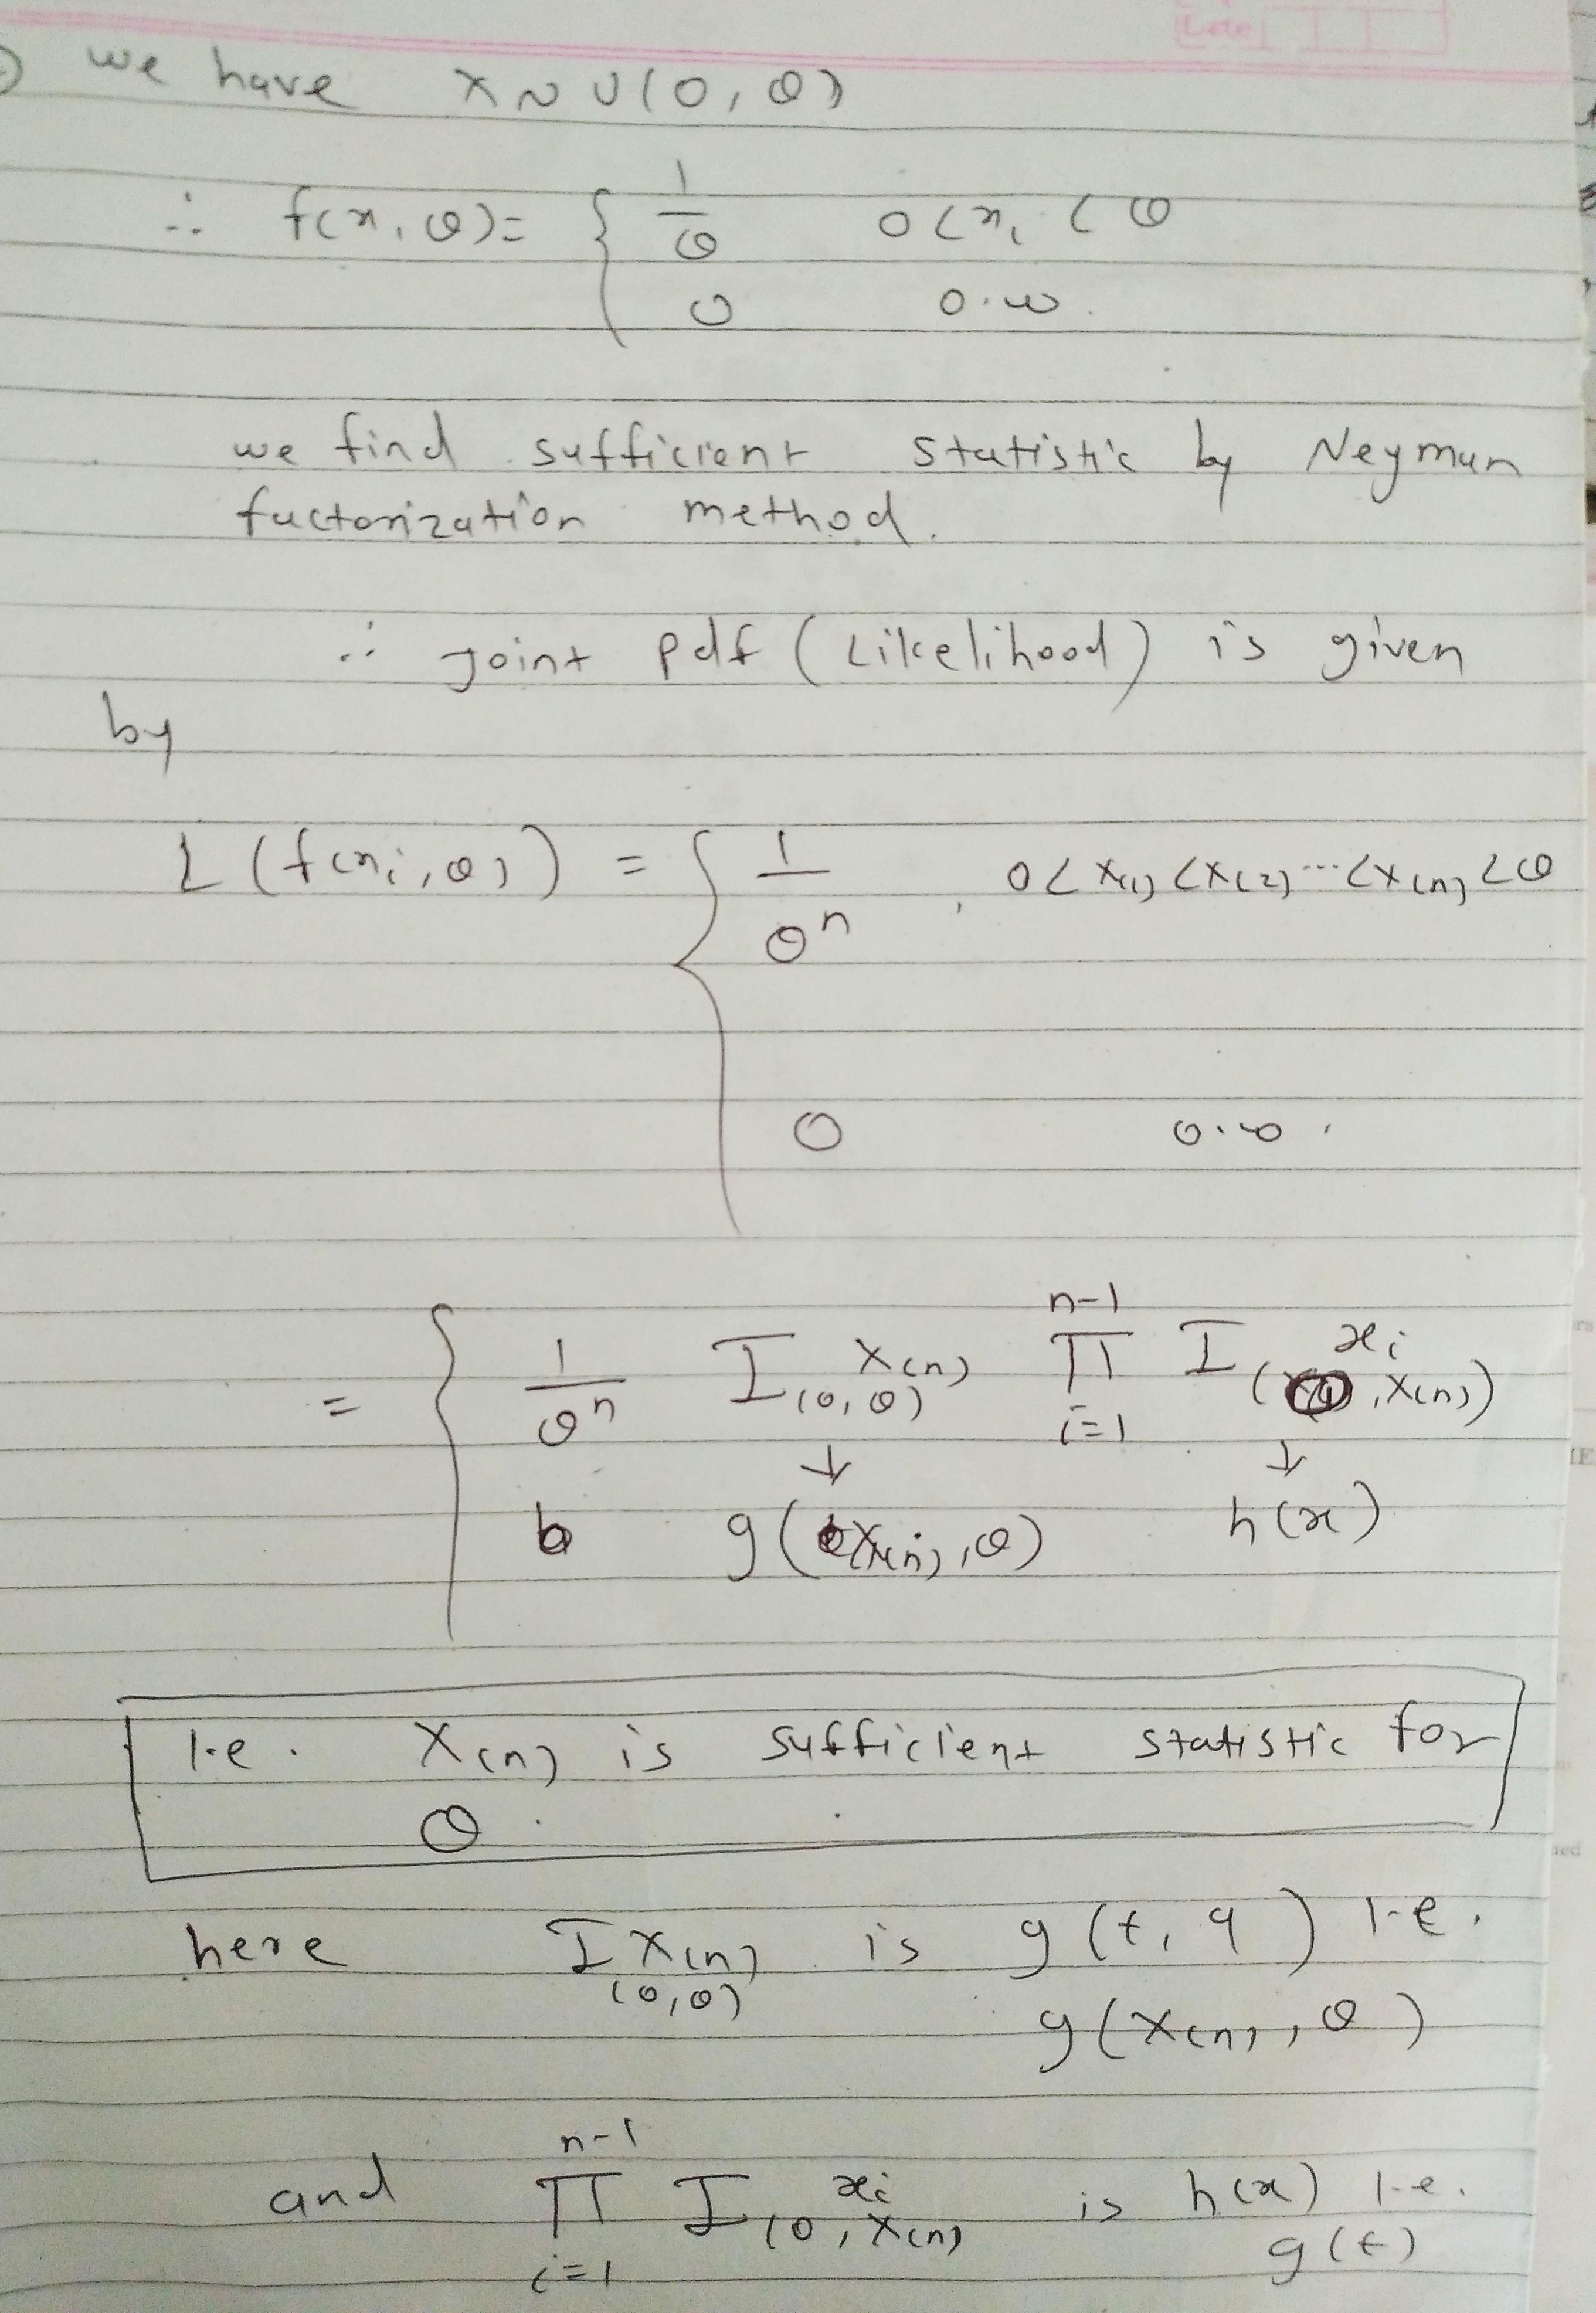 Date
we have X ~ U(0, θ)
∴ f(x, θ) = { 1/θ 0 < xi < θ
0 o.w.
we find sufficient statistic by Neyman
factorization method.
∴ joint pdf (Likelihood) is given
by
L(f(xi, θ)) = { 1/θ^n , 0 < X(1) < X(2) ... < X(n) < θ
0 o.w.
= { 1/θ^n I X(n) (0, θ) n-1 Π i=1 I xi ( , X(n))
↓ ↓
g( X(n), θ) h(x)
i.e. X(n) is sufficient statistic for
θ.
here I X(n) (0, θ) is g(t, q) i.e.
g(X(n), θ)
and n-1 Π i=1 I xi (0, X(n) is h(x) i.e.
g(t)